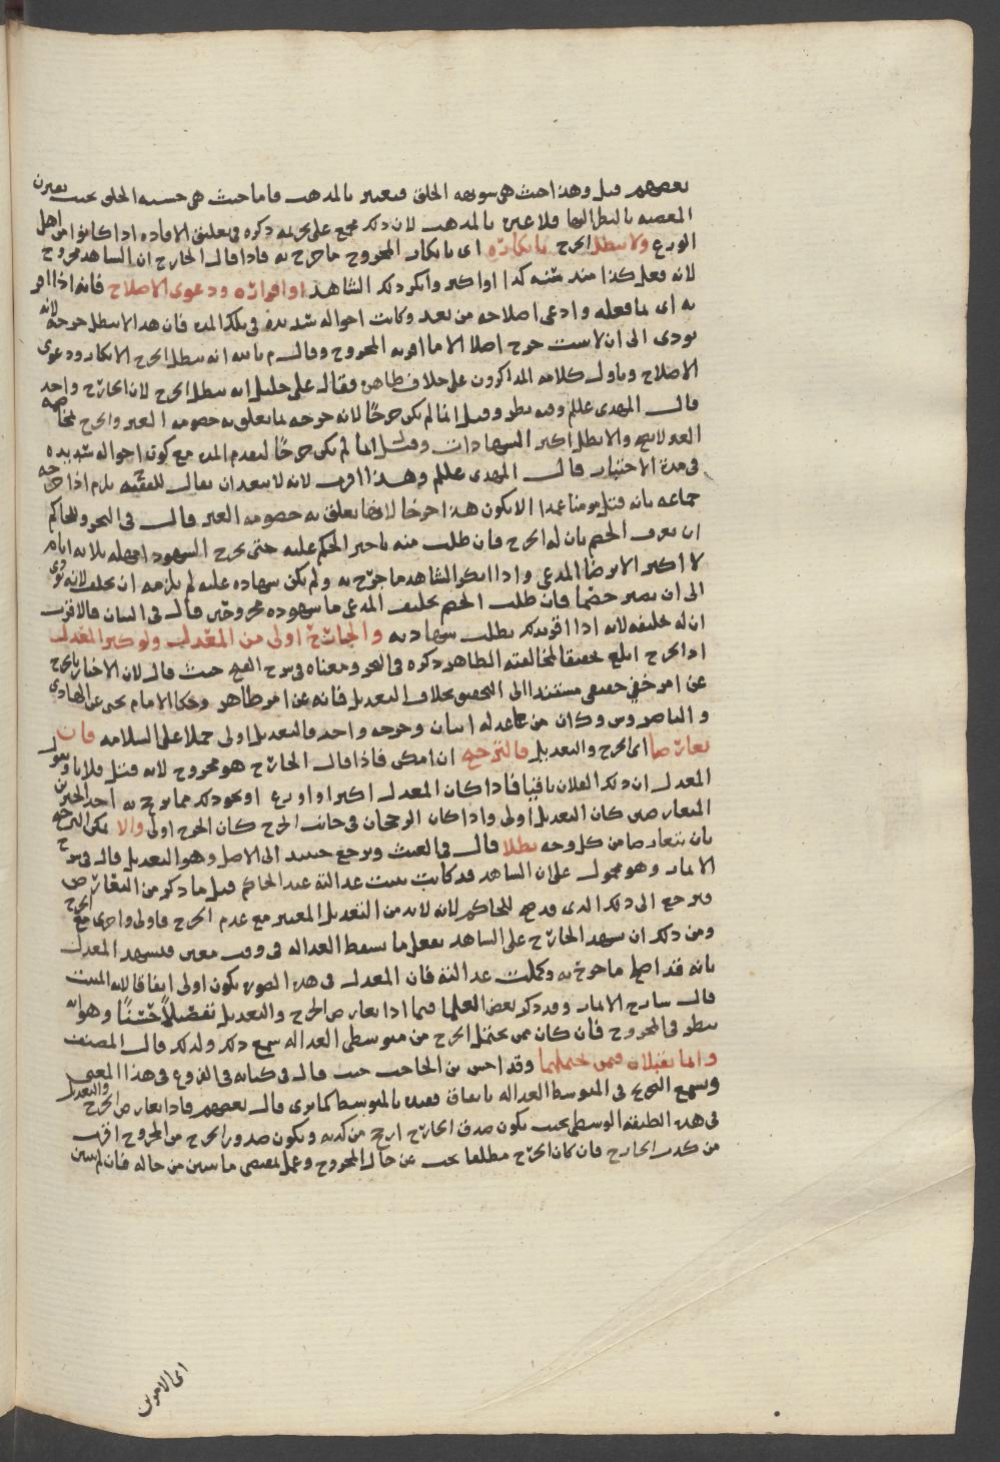 بعضهم قيل وهذا حيث هي سويعه الخلق فيعتبر بالمذهب فاما حيث هي خسيسه الخلق بحيث
المعصيه بالنظر اليها فلا عبره بالمذهب لان ذلك مجمع على تحريمه ذكره في تعليق الافاده اذا كانوا من اهل
الورع ولا يبطل الجرح بانكاره اى بانكار المجروح ما جرح به فاذا قال الجارح ان الشاهد مجروح
لانه فعل كذا منذ سنه كذا او اكثر وانكر ذلك الشاهد او اقراره ودعوى الاصلاح فانه اذا اقر
به اى بما فعله وادعى اصلاحه من بعد وكانت احواله شديده في تلك المده فان هذا لا يبطل جرحه لانه
يودى الى ان لا يثبت جرح اصلا الا ما اقر به المجروح وقال م بالله انه يبطل الجرح الانكار ودعوى
الاصلاح وتاول كلامه المذاكرون على خلاف ظاهره فقال على خليل انه يبطل الجرح لان الجارح واحد
قال المهدى عليلم وفيه نظر وقيل انما لم يكن جرحًا لانه جرحه بما يتعلق به خصومه الغير والجرح
الغير لا يصح والا بطل اكثر الشهادات وقيل انما لم يكن جرحًا لبعد المده مع كون احواله شديده
في مدة الاختبار قال المهدى عليلم وهذا اقرب لانه لا يبعد ان يقال للفقيه يلزم اذا
جماعه بانه قتل مومنا عمدا الا يكون هذا جرحا لانها يعلق به خصومه الغير قال في البحر وللحاكم
ان يعرف الخصم بان له الجرح فان طلب منه تاخير الحكم عليه حتى يجرح الشهود امهله ثلاثه ايام
لا اكثر الا برضا المدعى واذا انكر الشاهد ما جرح به ولم تكن شهاده عليه لم يلزمه ان يحلف لانه
الى ان يصير خصما فان طلب الخصم تحليف المدعى ما شهوده مجروحين قال في البيان فالاقرب
ان له تحليفه لانه اذا اقر بذلك بطلت شهادته والجارح اولى من المعدل ولو كثر المعدل
اذ الجرح ابلغ تحقيقا لمخالفته الظاهر ذكره في البحر ومعناه في شرح الفتح حيث قال لان الاخبار بالجرح
عن امر خفي حقيقى مستندا الى التحقيق بخلاف التعديل فانه عن امر ظاهر وحكا الامام يحيى عن الهادى
والناصر وش وكان من عدله اثنان وجرحه واحد فالتعديل اولى حملا على السلامه فان
تعارضا اى الجرح والتعديل فالترجيح ان امكن فاذا قال الجارح هو مجروح لانه قتل فلانا ويقول
المعدل ان ذلك الفلان باقيا فاذا كان المعدل اكثر او اورع او نحو ذلك مما يرجح به احد الخبرين
المتعارضين كان التعديل اولى واذا كان الرجحان في جانب الجرح كان الجرح اولى والا يمكن الترجيح
بان يتعارضا من كل وجه بطلا قال في الغيث ويرجع حينئذ الى الاصل وهو التعديل قال في شرح
الاثمار وهو محمول على ان الشاهد قد كانت ثبتت عدالته عند الحاكم قبل ما ذكر من التعارض
فيرجع الى ذلك الذى قد صح للحاكم لانه لا بد من التعديل المعتبر مع عدم الجرح فاولى واحرى مع الجرح
ومن ذلك ان يشهد الجارح على الشاهد بفعل ما يسقط العداله في وقت معين فيشهد المعدل
بانه قد اصلح ما جرح به وكملت عدالته فان المعدل في هذه الصوره يكون اولى اتفاقا لانه المثبت
قال شارح الاثمار وقد ذكر بعض العلما فيما اذا تعارض الجرح والتعديل تفصيلًا حسنًا وهو انه
ينظر في المجروح فان كان ممن يحتمل الجرح من متوسطى العداله سمع ذلك ولذلك قال المصنف
وانما يقبلان فيمن يحتملهما وقد احسن بن الحاجب حيث قال في كتابه في الفروع في هذا المعنى
ويسمع التجريح في المتوسط العداله باتفاق فقيده بالمتوسط كما ترى قال بعضهم فاذا تعارض الجرح والتعديل
في هذه الطبقه الوسطى بحيث يكون صدق الجارح ارجح من كذبه ويكون صدور الجرح من المجروح اقرب
من كذب الجارح فان كان الجرح مطلقا بحث عن حال المجروح وعمل بمقتضى ما تبين من حاله فان لم يتبين
اى الامرين